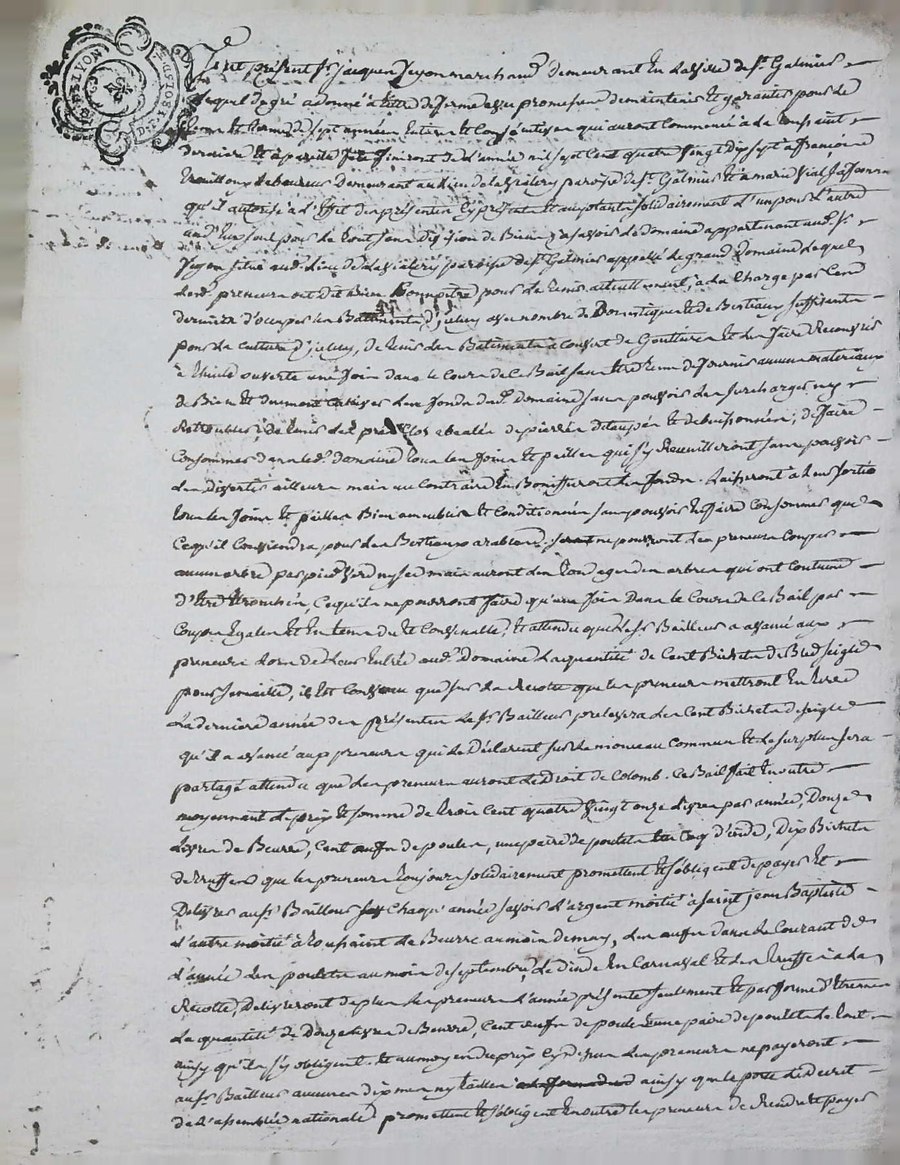 fut présent sr. jacques jeyon marchand demeurant en la ville de st. Galmier
Lequel de gré a donné à titre de ferme et sous promesse de maintenir et garantir pour le
terme de sept années entières et Consécutives qui auront Commencé à la toussaint
derniere et à pareille fête finiront de l'année mil sept Cent quatre vingt dix sept à françois
laboureur demeurant au Lieu de paroisse de st. Galmier et à marie vial sa femme
qu'il autorise à l'Effet des présentes Cy présents et acceptants solidairement l'un pour l'autre
un d'Eux seul pour le tout sans division de Biens sçavoir le domaine appartenant aud. sr.
jeyon situé aud. Lieu de paroisse de st. Galmier appellé le grand Domaine Lequel
Lesd. preneurs ont dit Bien Connoitre pour le tenir actuellement, à la Charge par Ces
derniers d'occuper les Batiments d'jceluy avec nombre de Domestiques et de Bestiaux suffisants
pour la culture d'jceluy, de tenir les Batiments à couvert de Goutieres et les faire Recouvrir
à thuile ouverte une fois dans le Cours de ce Bail sans être tenus de fournir aucuns matériaux
de Bien et duement Cultiver les fonds dud. Domaine sans pouvoir les surcharger ny
détroubler, de tenir les prés Clos de pierres étaupés et debuissonnés; de faire
Consommer dans led. domaine tous les foins et pailles qui s'y Recueilleront sans pouvoir
les divertir ailleurs mais au Contraire En Boniffieront les fonds. Laisseront à leur sortie
tous les foins et pailles Bien ameublis et Conditionnés sans pouvoir En faire Consommer que
Ce qu'il Conviendra pour les Bestiaux arables. ne pourront les preneurs Couper
aucun arbre par pied verd ny sec mais auront les Elagages des arbres qui ont Coutume
d'Etre Etronchés, Ce qu'ils ne pourront faire qu'une fois Dans le Cours de Ce Bail par
Coupes Egales Et En tems du et Convenable, Et attendu que le sr. Bailleur a avancé aux
preneurs Lors de Leur Entrée aud. Domaine La quantité de Cent Bichets de Bled seigle
pour semaille, il Est Convenu que sur la Recolte que les preneurs mettront En terre
La derniere année des présentes Le sr. Bailleur prelevera Les Cent Bichets de seigle
qu'il a avancé aux preneurs qui le Déclarent sur le monceau commun Et le surplus sera
partagé attendu que les preneurs auront Le Droit de Colomb. Ce Bail fait En outre
moyennant le prix Et somme de trois Cent quatre vingt onze Livres par année, Douze
Livres de Beurre, Cent œufs de poules, une paire de poulets un Coq d'inde, Dix Bichets
de truffes que les preneurs toujours solidairement promettent Et s'obligent de payer Et
Delivrer au sr. Bailleur Chaque année savoir L'argent moitié à saint jean Baptiste
L'autre moitié à toussaint Le Beurre au mois de may, Les œufs dans le Courant de
L'année Les poulets au mois de septembre, Le dinde En Carnaval Et les truffes à la
Récolte, Delivreront de plus Les preneurs L'année présente seulement Et par forme d'Etrennes
La quantité de Douze Livres de Beurre, Cent œufs de poule et une paire de poulets Le tout
ainsy qu'ils s'y obligent. Et au moyen du prix Cy dessus Les preneurs ne payeront
au sr. Bailleur aucunes dixmes ny tailles ainsy que le porte Le Decret
de L'assemblée nationale, promettent Et s'obligent En outre les preneurs de Rendre et payer